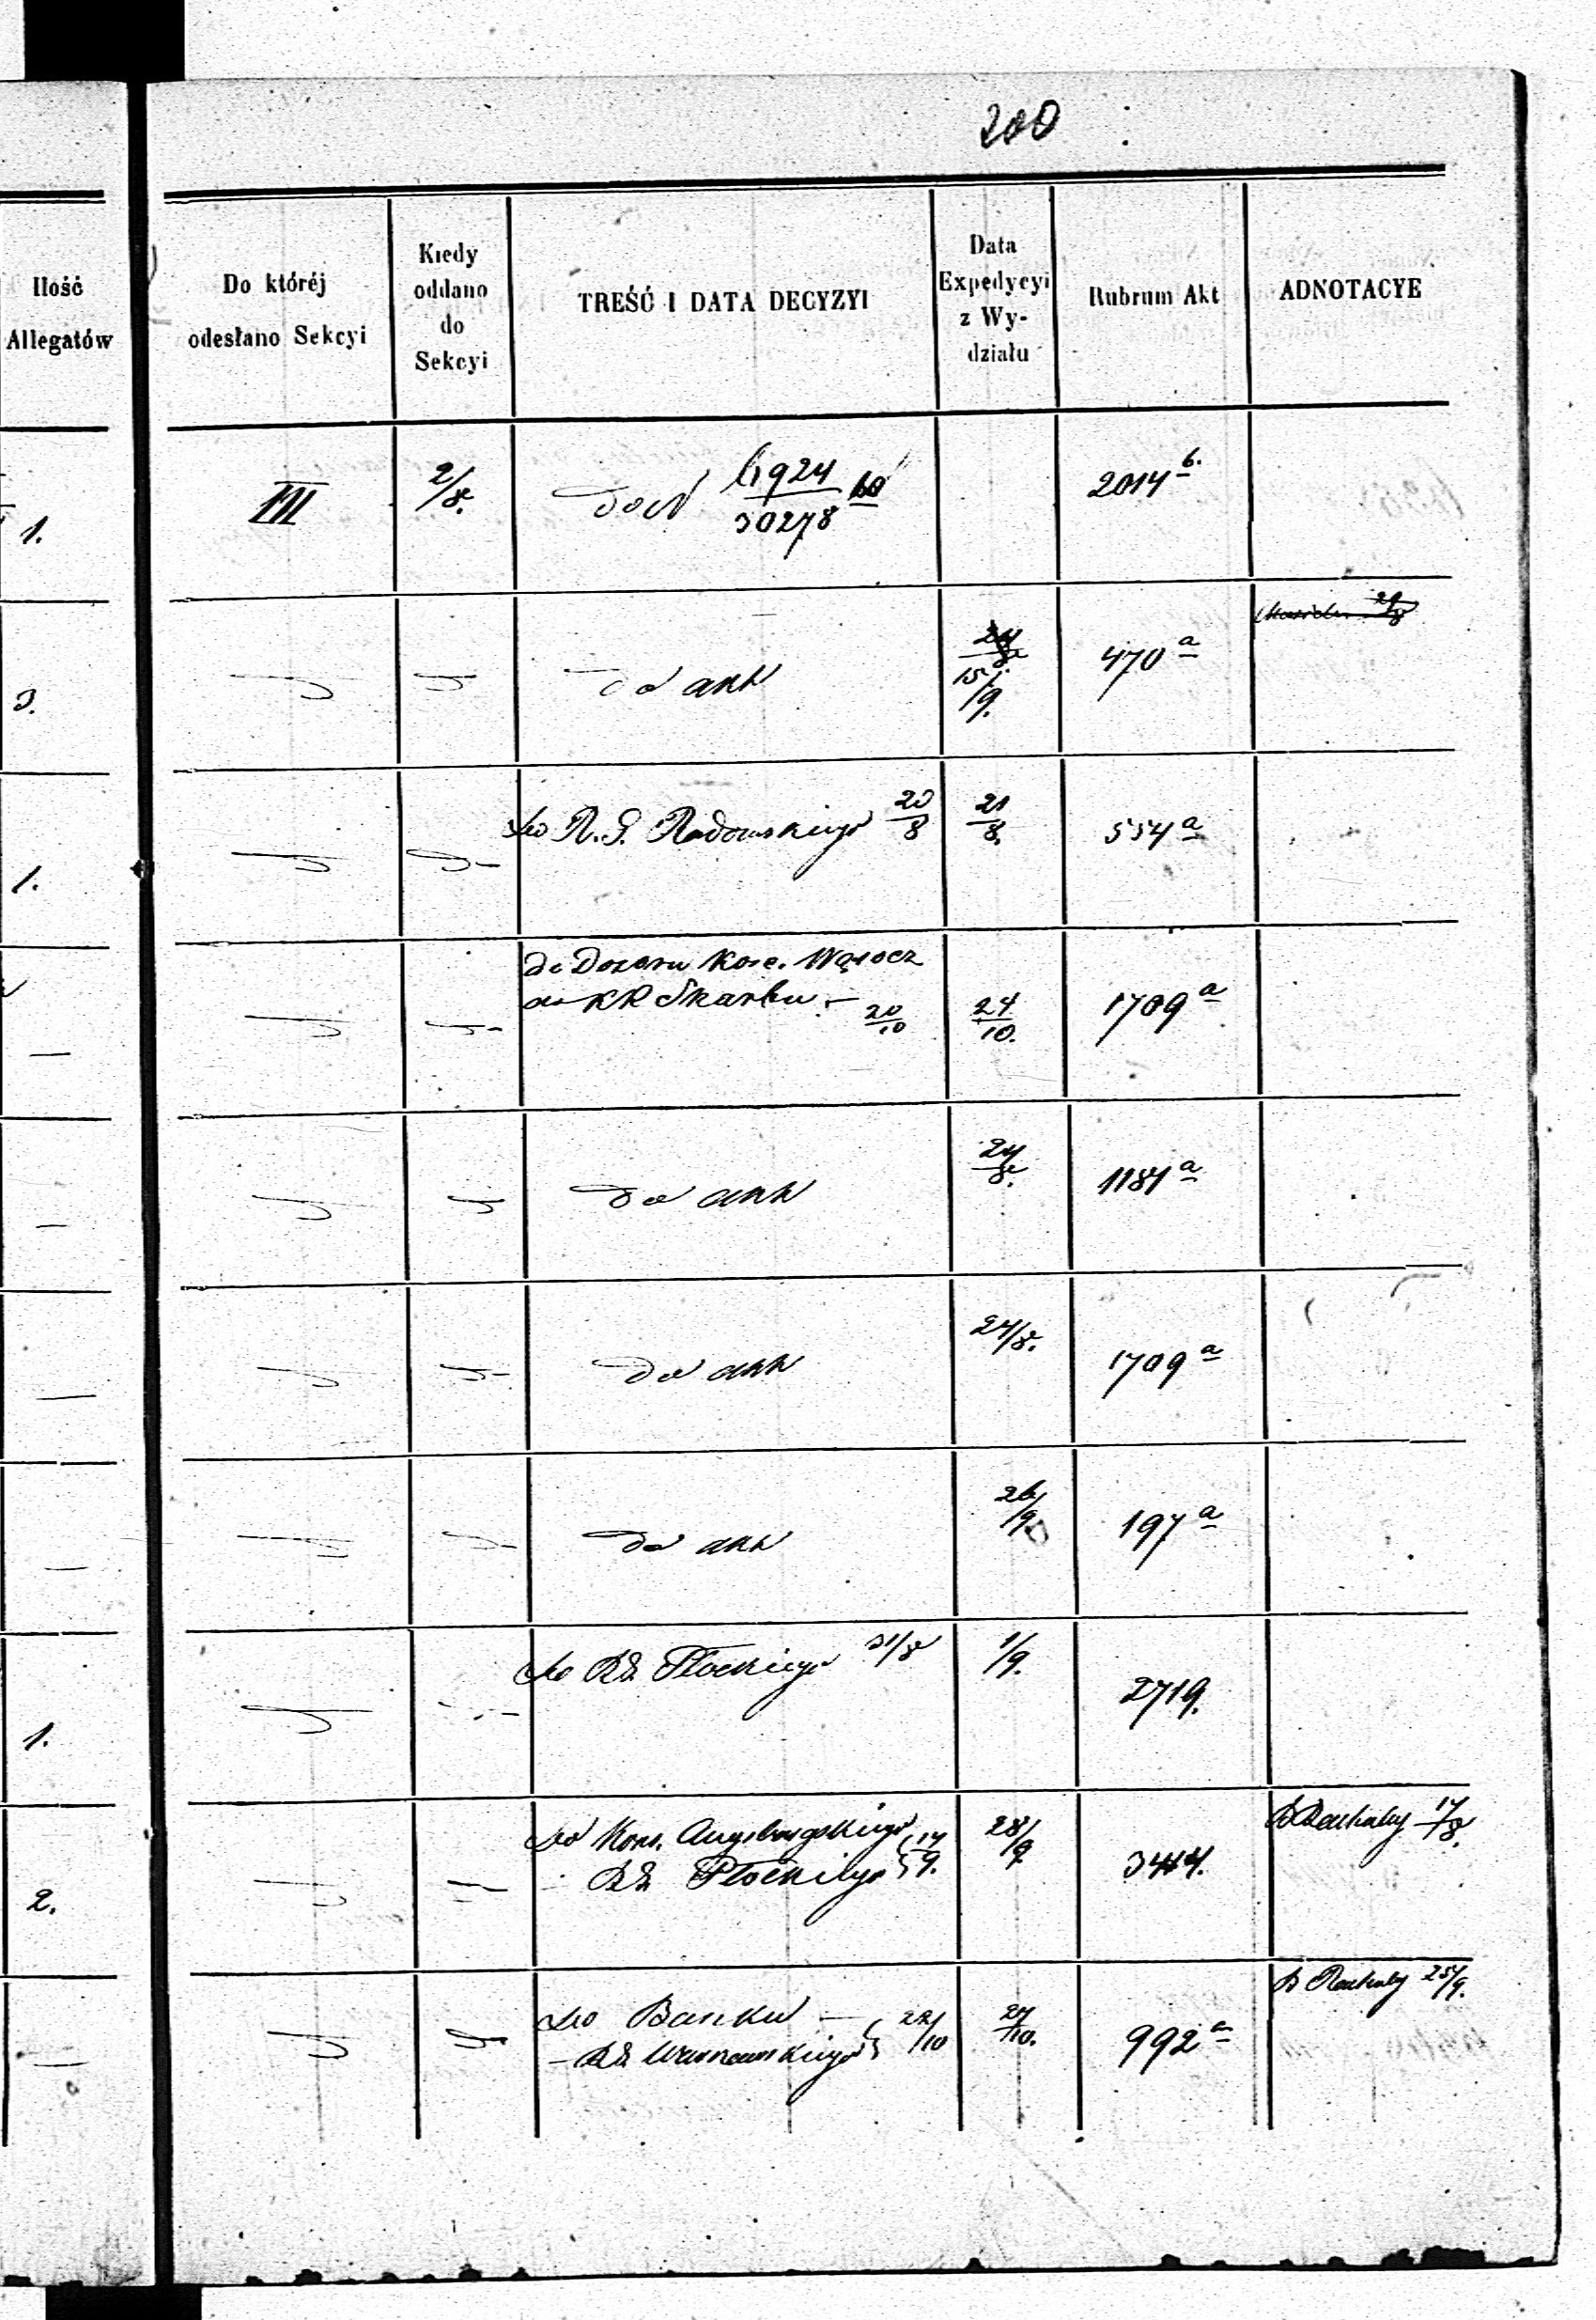 200
Ilość
Allegatów
Do któréj
odesłano Sekcyi
Kiedy
oddano
do
Sekcyi
TREŚĆ I DATA DECYZYI
Data
Expedycyi
z Wy-
działu
Rubrum Akt
ADNOTACYE
1. III 2/8. do N 6924/30278 60 2014 b.
3. do akt 24/8 15/9. 470 a
1. do R. G. Radomskiego 20/8 21/8. 554 a
do Dozoru Kośc. Wąsocz
do KR Skarbu — 20/10 24/10. 1709 a
— do akt 24/8. 1184 a
— do akt 24/8. 1709 a
— do akt 26/9 197 a
1. do RG Płockiego 31/8 1/9. 2719.
2. do Kons. Augsburgskiego 17/9. 28/9 3414. 17/8.
RG Płockiego
— do Banku — 22/10 27/10. 992 a 25/9.
— RG Warszawskiego